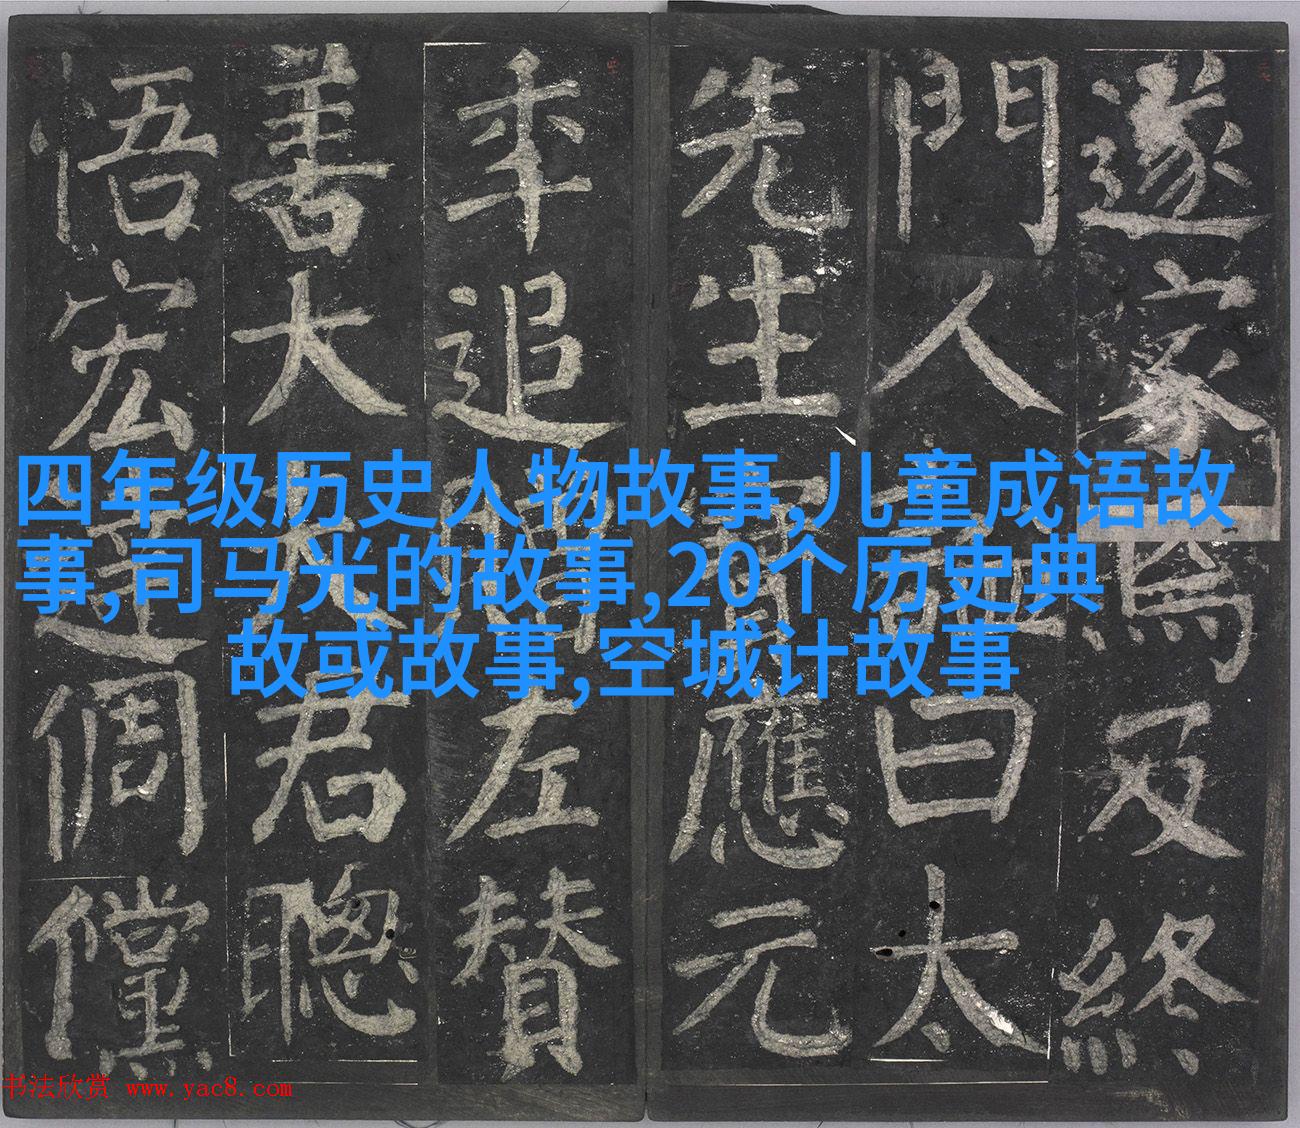 遂家焉及終
門人曰太
先生寶應元
年追贈左贊
善大夫君聰
悟宏達倜儻
四年级历史人物故事,儿童成语故
事,司马光的故事,20个历史典
故或故事,空城计故事
书法欣赏 www.yac8.com